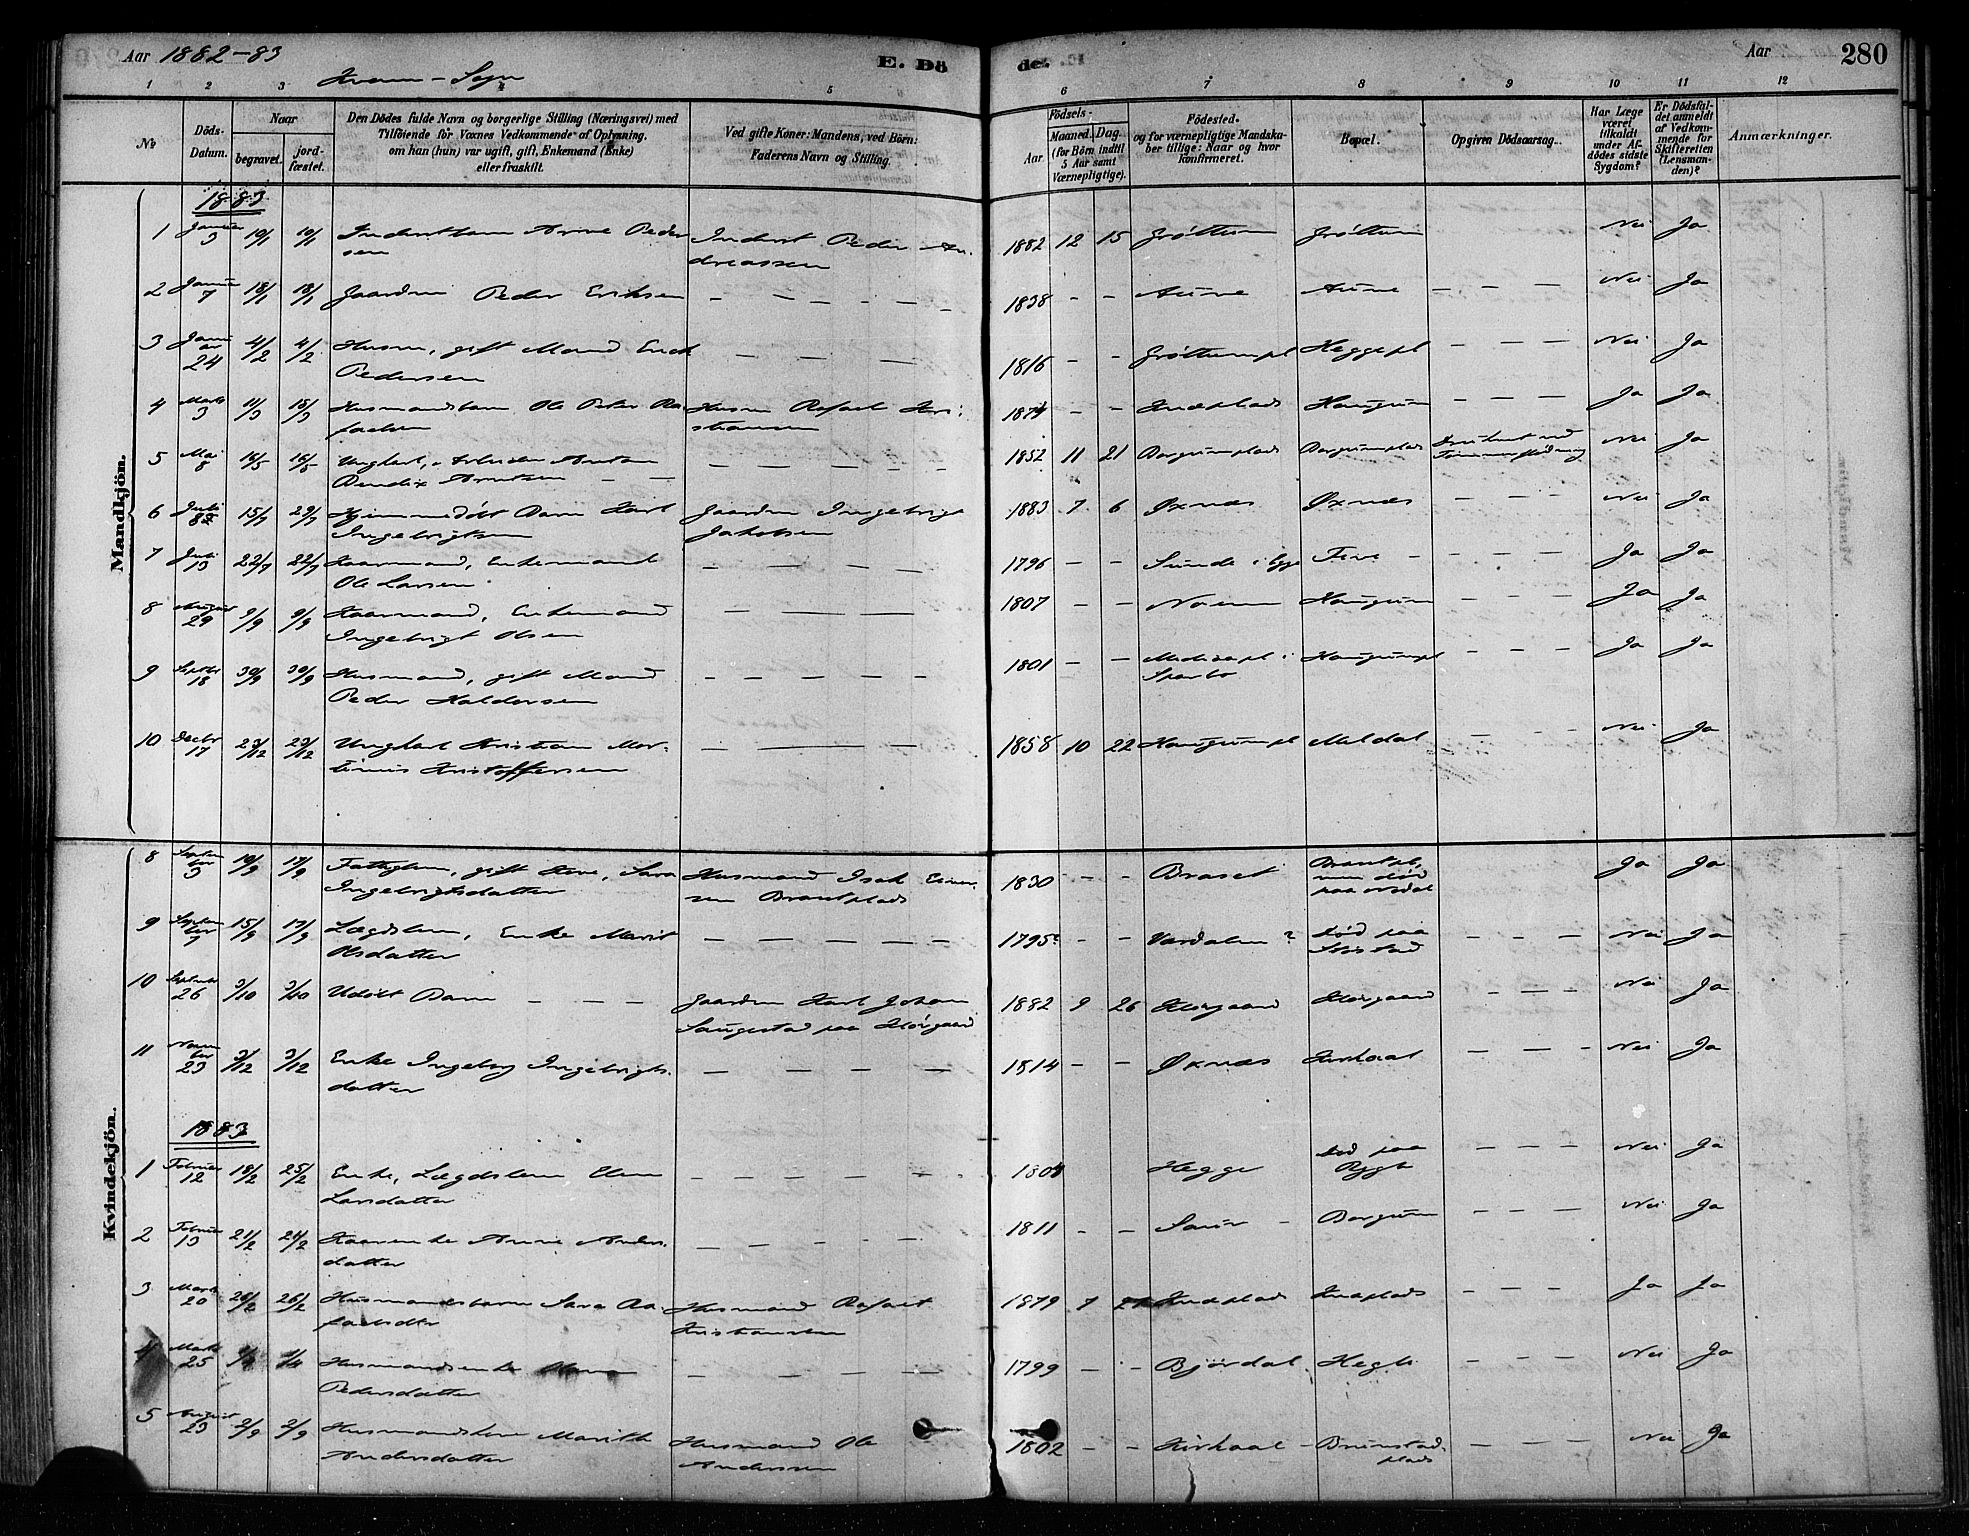 Aar 1882-83
E. Dö
de.
Aar
280
Kvam - Sogn
1 2 3 4 5 6 7 8 9 10 11 12
No
Döds-Datum.
Naar
begravet.
jord-fæstet.
Den Dödes fulde Navn og borgerlige Stilling (Næringsvei) med
Tilföiende för Voxnes Vedkommende af Oplysning,
om han (hun) var ugift, gift, Enkemand (Enke)
eller fraskilt.
Ved gifte Koner: Mandens, ved Börn:
Faderens Navn og Stilling.
Födsels-
Aar
Maaned. Dag.
(for Börn indtil
5 Aar samt
Værnepligtige).
Födested.
og for værnepligtige Mandska-
ber tillige: Naar og hvor
konfirmeret.
Bopæl.
Opgiven Dödsaarsag.
Har Læge
været
tilkaldt
under Af-
dödes sidste
Sygdom?
Er Dödsfal-
det anmeldt
af Vedkom-
mende for
Skifteretten
(Lensman-
den)?
Anmærkninger.
Mandkjön.
1883
1 Januar 3 10/1 10/1 Arne Peder-
sen
Inderst Peder An-
dreassen
1882 12 15 Grøttum Grøttum Nei Ja
2 7 18/1 18/1 Gaardm Peder Eriksen — — — — 1838 - - Aune Aune — — — Nei Ja
3 Janu
ar
24 4/2 4/2 Husm, gift Mand Erik
Pedersen
— — — — 1816 - - Grøttumpl Heggepl — — — Nei Ja
4 Marts 3 11/3 18/3 Husmandsbarn Ole Peter Ra-
faelsen
Husm Rafael Kri-
stiansen
1874 - - Haugum — — — Ja Ja
5 Mai 8 16/5 16/5 Ungkarl, Arbeider Anton
Bendix Arntsen — —
1852 11 21 Borgumplads Borgumplads Druknet ved
Tømmerflødning
Nei Ja
6 Juli 15/7 29/7 Hjemmedøbt Barn Karl
Ingebrigtsen
Gaardm Ingebrigt
Jakobsen
1883 7 6 Øxnæs Øxnæs — — — Nei Ja
7 Juli 13 22/7 22/7 Kaarmand, Enkemand
Ole Larsen
— — — — 1796 - - Sunde i Egge — — — Ja Ja
8 August 29 9/9 9/9 Kaarmand, Enkemand
Ingebrigt Olsen
— — — 1807 - - Haugum — — — Ja Ja
9 Septbr 18 30/9 30/9 Husmand, gift Mand
Peder Haldorsen
— — — — — 1801 - - i
Sparbo
Haugumpl — — — Ja Ja
10 Decbr 17 23/12 23/12 Ungkarl Kristian Mor-
tinus Kristoffersen
— — — 1858 10 22 Haugumpl Meldal — — — Nei Ja
Kvindekjön.
8 Septem
ber
3 10/9 17/9 Fattiglem, gift Kone, Sara
Ingebrigtsdatter
Husmand Isak Einar-
sen
1830 - - - Ja Ja
9 Septem
ber
7 15/9 17/9 Lægdslem, Enke Marit
Olsdatter
— — — — — 1795? - - Værdalen? død paa
— — — Nei Ja
10 Septembr 26 3/10 3/10 Udøbt Barn — — — Gaardm Karl Johan
1882 9 26 — — — Nei Ja
11 Novem
ber
23 3/12 3/12 Enke Ingeborg Ingebrigts-
datter
— — — — 1814 - - Øxnæs — — — Nei Ja
1883
1 Februar 12 18/2 25/2 Enke, Lægdslem Elen
Larsdatter
— — — — — 1804 Hegge død paa
— — — Nei Ja
2 Februar 13 21/2 24/2 Kaarenke Anne Anders-
datter
— — — — — 1811 - - Borgum — — — Nei Ja
3 Marts 20 26/2 26/2 Husmandsbarn Sara Ra-
faelsdtr
Husmand Rafael
Kristiansen
1879 7 — — — Ja Ja
4 Marts 25 1/4 Husmandsenke
Pedersdatter
— — — — 1799 - - Bjørdal — — — Nei Ja
5 August 23 2/9 2/9 Husmandskone Marith
Andersdatter
Husmand Ole
Anderssen
1802 - - — — — Nei Ja